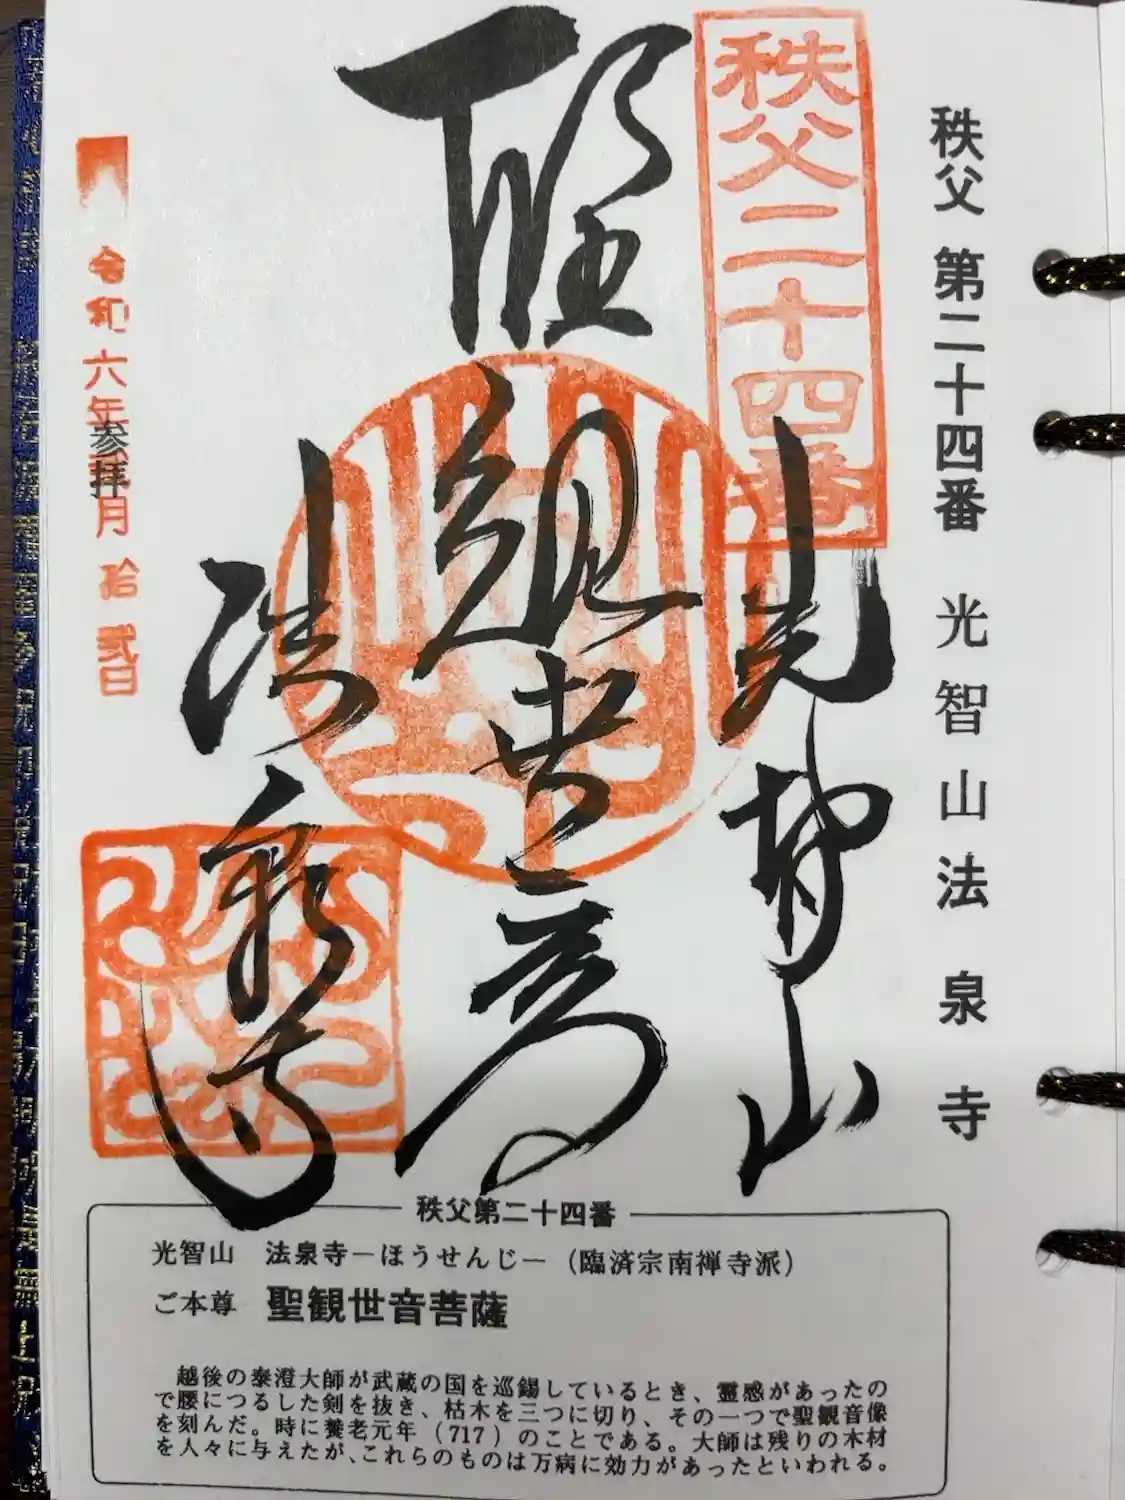 秩父 第二十四番 光智山法泉寺
秩父二十四番
光智山
聖観世音
法泉寺
令和六年
月拾弐日
参拝
秩父第二十四番
光智山 法泉寺－ほうせんじ－（臨済宗南禅寺派）
ご本尊 聖観世音菩薩
越後の泰澄大師が武蔵の国を巡錫しているとき、霊感があったの
で腰につるした剣を抜き、枯木を三つに切り、その一つで聖観音像
を刻んだ。時に養老元年（717）のことである。大師は残りの木材
を人々に与えたが、これらのものは万病に効力があったといわれる。